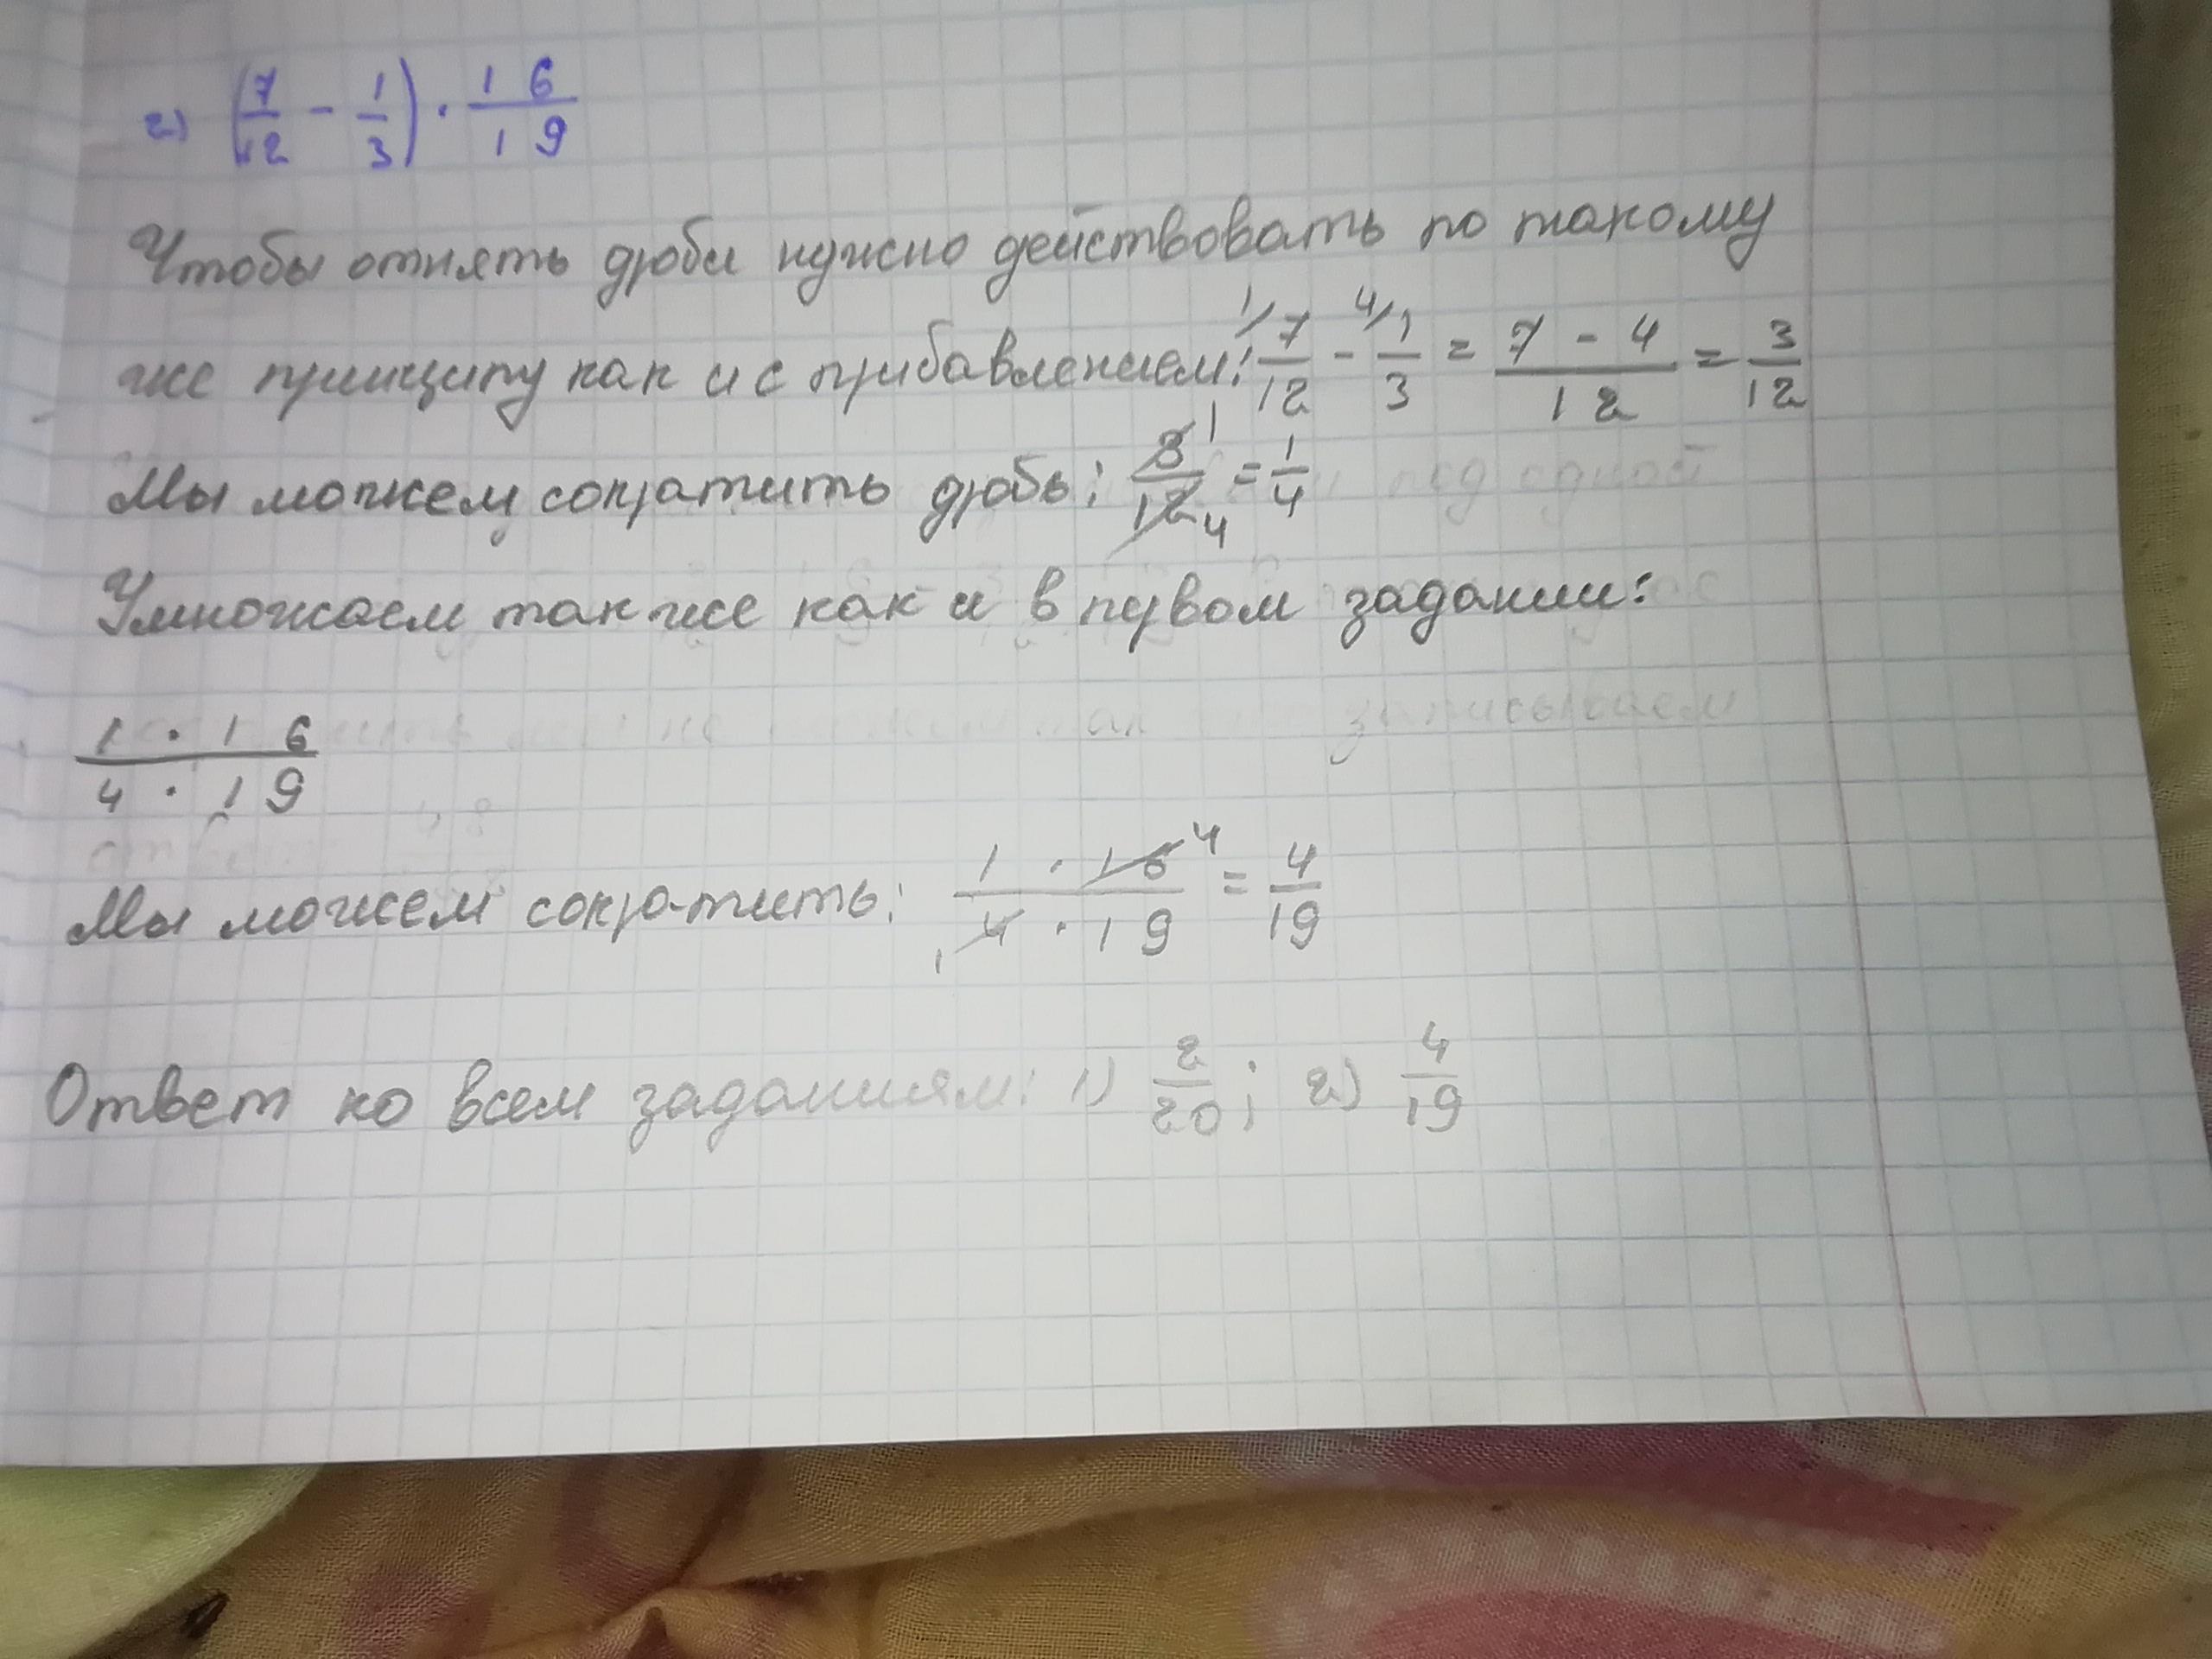 2) (7/12 - 1/3) · 16/19
Чтобы отнять дроби нужно действовать по такому
же принципу как и с прибавлением: 1/ 7/12 - 4/ 1/3 = 7 - 4/12 = 3/12
Мы можем сократить дробь: 3 1/12 4 = 1/4
Умножаем так же как и в первом задании:
1 · 16/4 · 19
Мы можем сократить: 1 · 16 4/1 4 · 19 = 4/19
Ответ ко всем заданиям: 1) 2/20; 2) 4/19